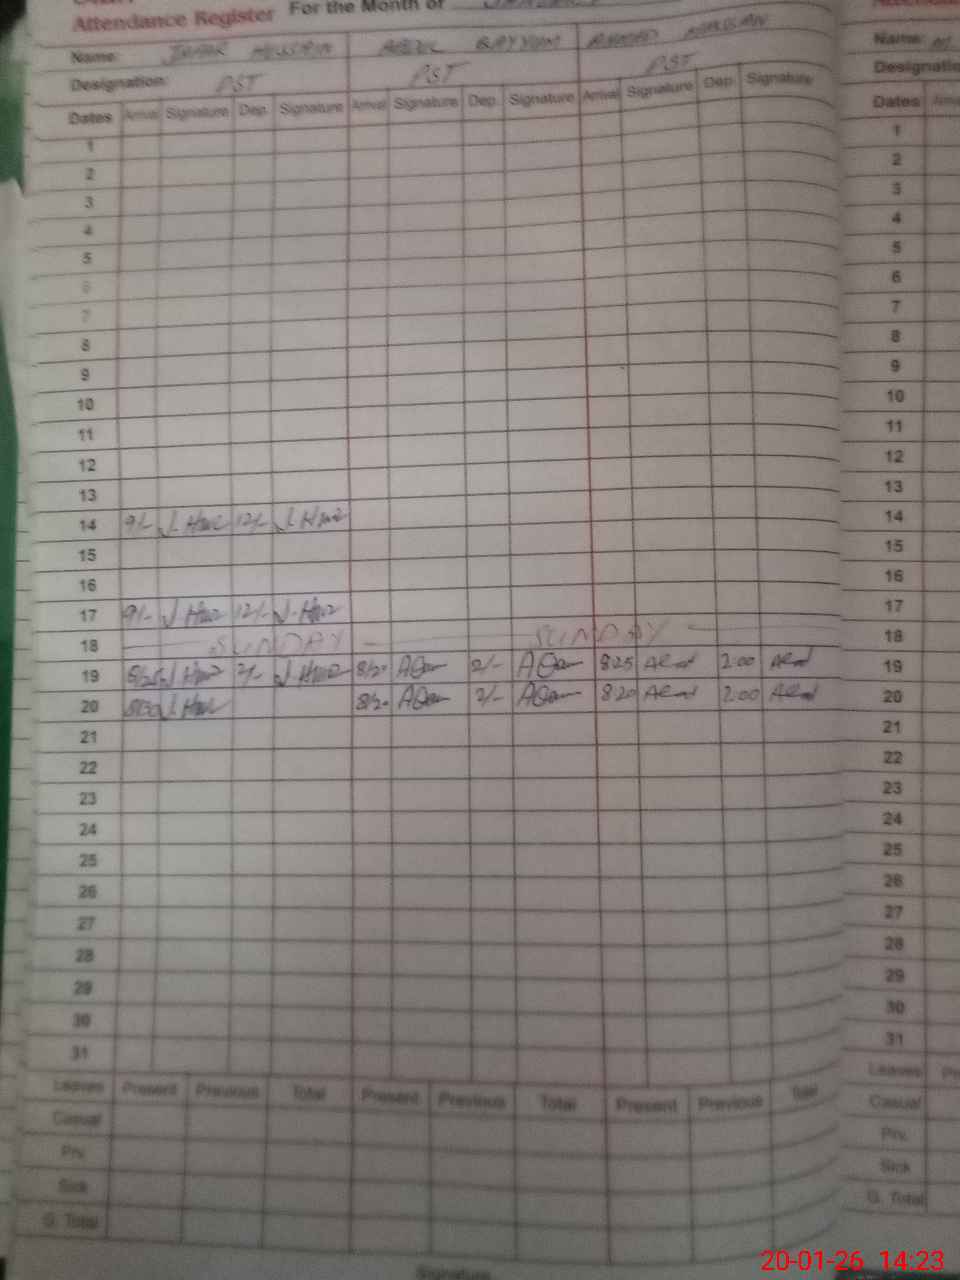 Attendance Register For the Month of
Name: HUSSAIN ABDUL QAYYUM AHMAD HASSAN
Designation: PST PST PST
Dates Arrival Signature Dep. Signature Arrival Signature Dep. Signature Arrival Signature Dep. Signature
1
2
3
4
5
6
7
8
9
10
11
12
13
14 9/- 12/-
15
16
17 9/- 12/-
18 SUNDAY SUNDAY
19 8/25 2/- 8/20 2/- 825 2:00
20 8/20 2/- 820 2:00
21
22
23
24
25
26
27
28
29
30
31
Leaves Present Previous Total Present Previous Total Present Previous Total
Casual
Prv.
Sick
G. Total
Signature
Name: M
Designatio
Dates
1
2
3
4
5
6
7
8
9
10
11
12
13
14
15
16
17
18
19
20
21
22
23
24
25
26
27
28
29
30
31
Leaves
Casual
Prv.
Sick
G. Total
20-01-26 14:23